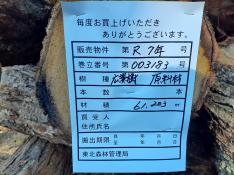 毎度お買上げいただき
ありがとうございます。
販売物件 第 R 7年 号
巻立番号 第 003183 号
樹種 広葉樹 原料材
本数 本
材積 61.203 m³
買受人
住所氏名
搬出期限 自 年 月 日
至 年 月 日
東北森林管理局